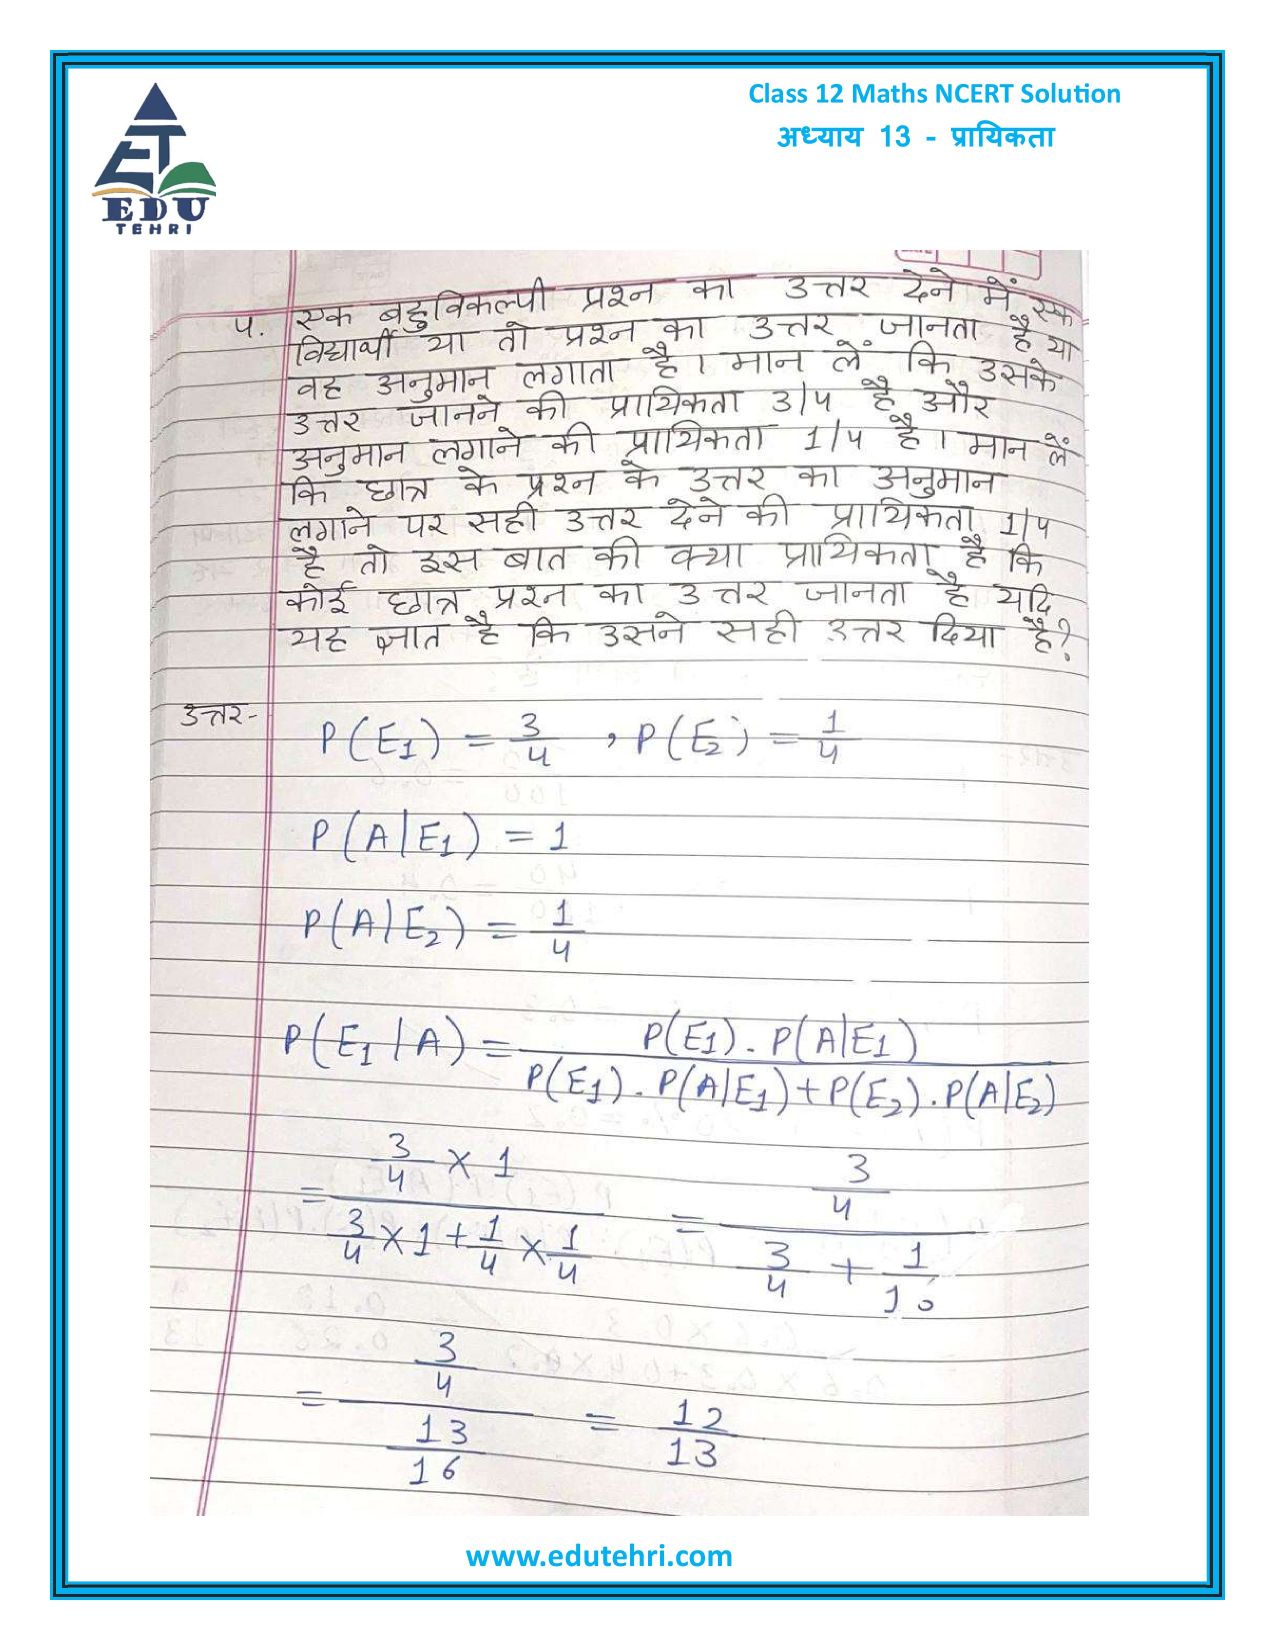 Class 12 Maths NCERT Solution
अध्याय 13 - प्रायिकता
EDU
TEHRI
4. एक बहुविकल्पी प्रश्न का उत्तर देने में एक
विद्यार्थी या तो प्रश्न का उत्तर जानता है या
वह अनुमान लगाता है। मान लें कि उसके
उत्तर जानने की प्रायिकता 3/4 है और
अनुमान लगाने की प्रायिकता 1/4 है। मान लें
कि छात्र के प्रश्न के उत्तर का अनुमान
लगाने पर सही उत्तर देने की प्रायिकता 1/4
है तो इस बात की क्या प्रायिकता है कि
कोई छात्र प्रश्न का उत्तर जानता है यदि
यह ज्ञात है कि उसने सही उत्तर दिया है?
उत्तर-
P(E₁) = 3/4 , P(E₂) = 1/4
P(A|E₁) = 1
P(A|E₂) = 1/4
P(E₁|A) = P(E₁) . P(A|E₁) / P(E₁) . P(A|E₁) + P(E₂) . P(A|E₂)
= 3/4 × 1 / 3/4 × 1 + 1/4 × 1/4 = 3/4 / 3/4 + 1/16
= 3/4 / 13/16 = 12/13
www.edutehri.com